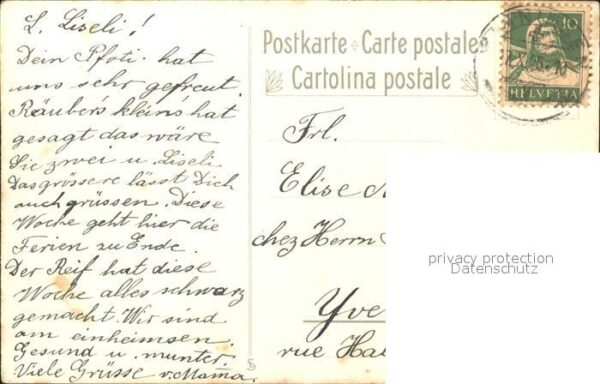 L. Liseli!
Dein Pfoti. hat
uns sehr gefreut.
Räubers kleins hat
gesagt das wäre
Sie zwei u. Liseli.
Das grössere lässt Dich
auch grüssen. Diese
Woche geht hier die
Ferien zu Ende.
Der Reif hat diese
Woche alles schwarz
gemacht. Wir sind
am einheimsen.
Gesund u. munter.
Viele Grüsse v. Mama.
Postkarte - Carte postale
Cartolina postale
10
HELVETIA
Frl.
Elise
chez Herrn
Yve
rue Hal
privacy protection
Datenschutz